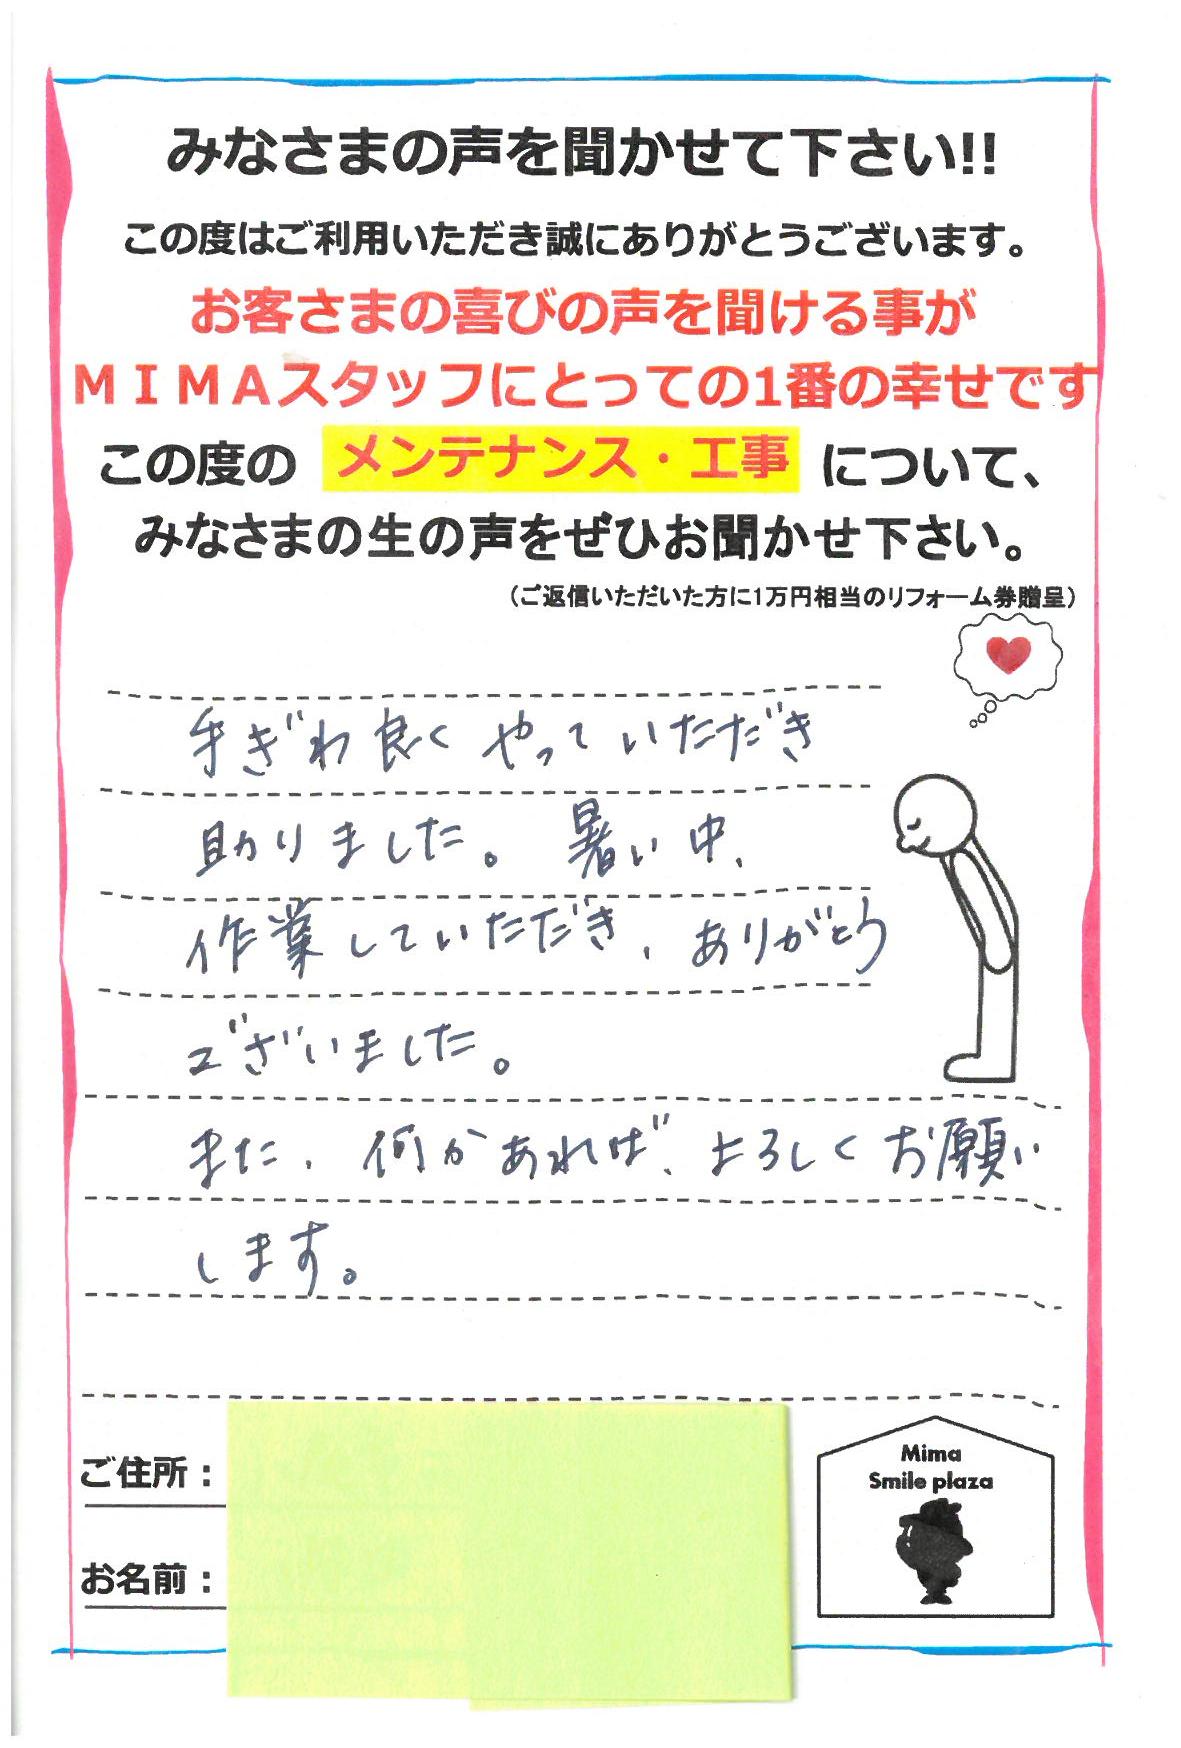 みなさまの声を聞かせて下さい!!
この度はご利用いただき誠にありがとうございます。
お客さまの喜びの声を聞ける事が
ＭＩＭＡスタッフにとっての1番の幸せです
この度の メンテナンス・工事 について、
みなさまの生の声をぜひお聞かせ下さい。
（ご返信いただいた方に1万円相当のリフォーム券贈呈）
手ぎわ良くやっていただき
助りました。暑い中、
作業していただき、ありがとう
ございました。
また、何かあれば、よろしくお願い
します。
ご住所：
お名前：
Mima
Smile plaza